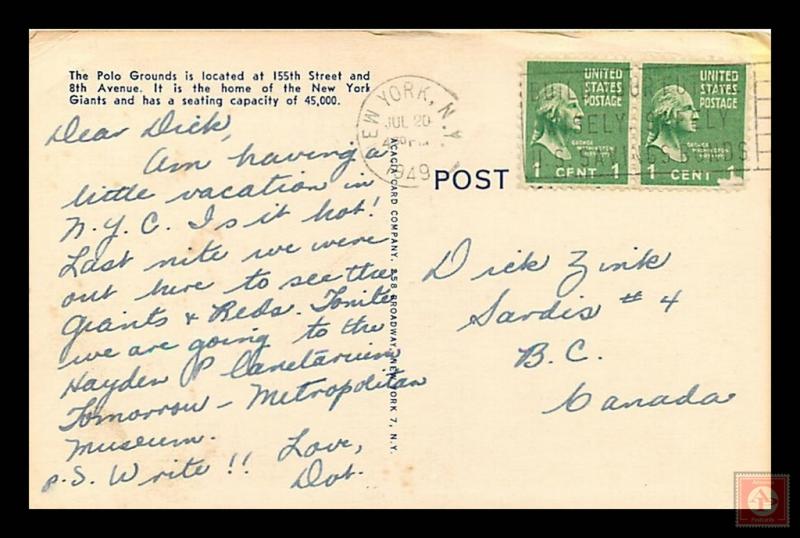 The Polo Grounds is located at 155th Street and
8th Avenue. It is the home of the New York
Giants and has a seating capacity of 45,000.
Dear Dick,
Am having a
little vacation in
N.Y.C. Is it hot!
Last nite we were
out here to see the
Giants & Reds. Tonite
we are going to the
Hayden Planetarium
Tomorrow - Metropolitan
Museum.
Love,
P.S. Write!! Dot.
ACACIA CARD COMPANY, 258 BROADWAY, NEW YORK 7, N.Y.
NEW YORK, N.Y.
JUL 20
PM
1949
POST
UNITED
STATES
POSTAGE
GEORGE
WASHINGTON
1 CENT 1
UNITED
STATES
POSTAGE
GEORGE
WASHINGTON
1 CENT 1
SAVINGS BONDS
Dick Zink
Sardis #4
B.C.
Canada